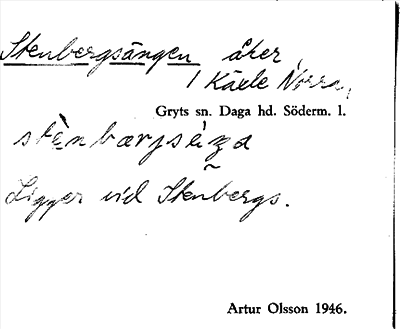 Stenbergsängen åker
/ Käele Norra,
Gryts sn. Daga hd. Söderm. l.
stènbærjsèŋa
Ligger vid Stenbergs.
Artur Olsson 1946.